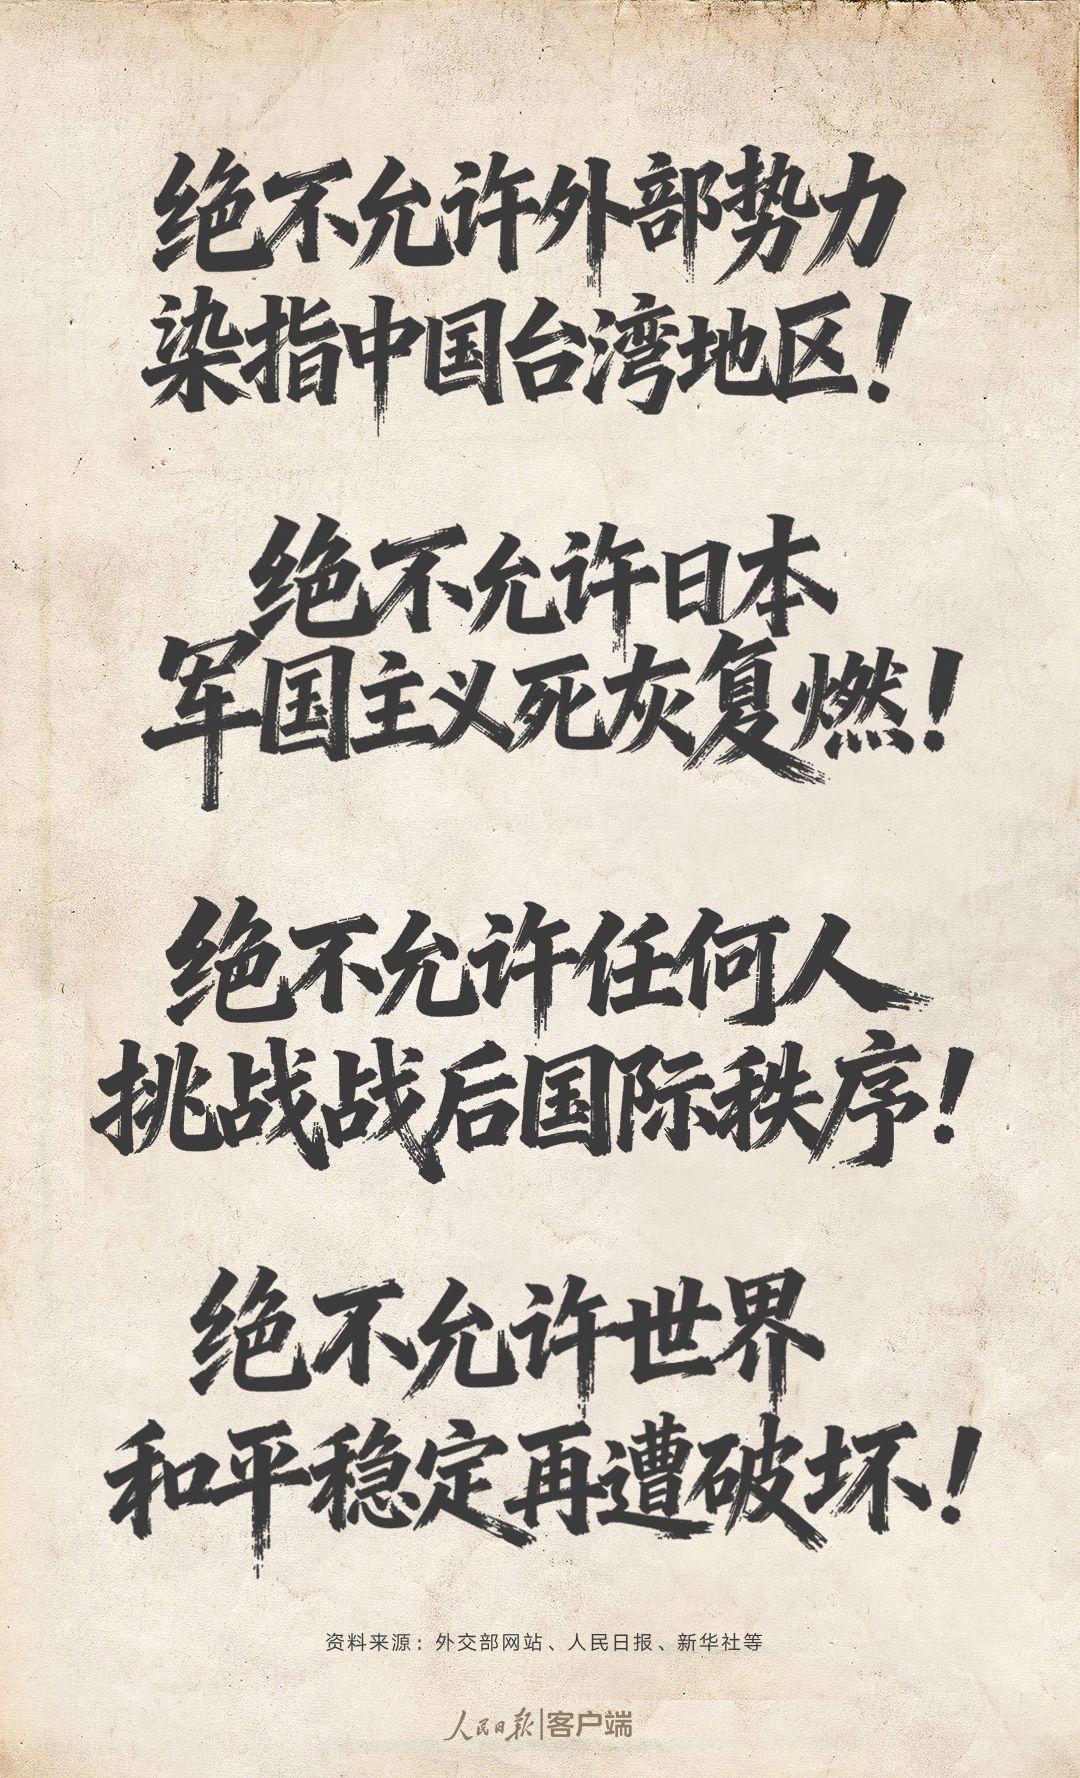 绝不允许外部势力
染指中国台湾地区！
绝不允许日本
军国主义死灰复燃！
绝不允许任何人
挑战战后国际秩序！
绝不允许世界
和平稳定再遭破坏！
资料来源：外交部网站、人民日报、新华社等
人民日报|客户端